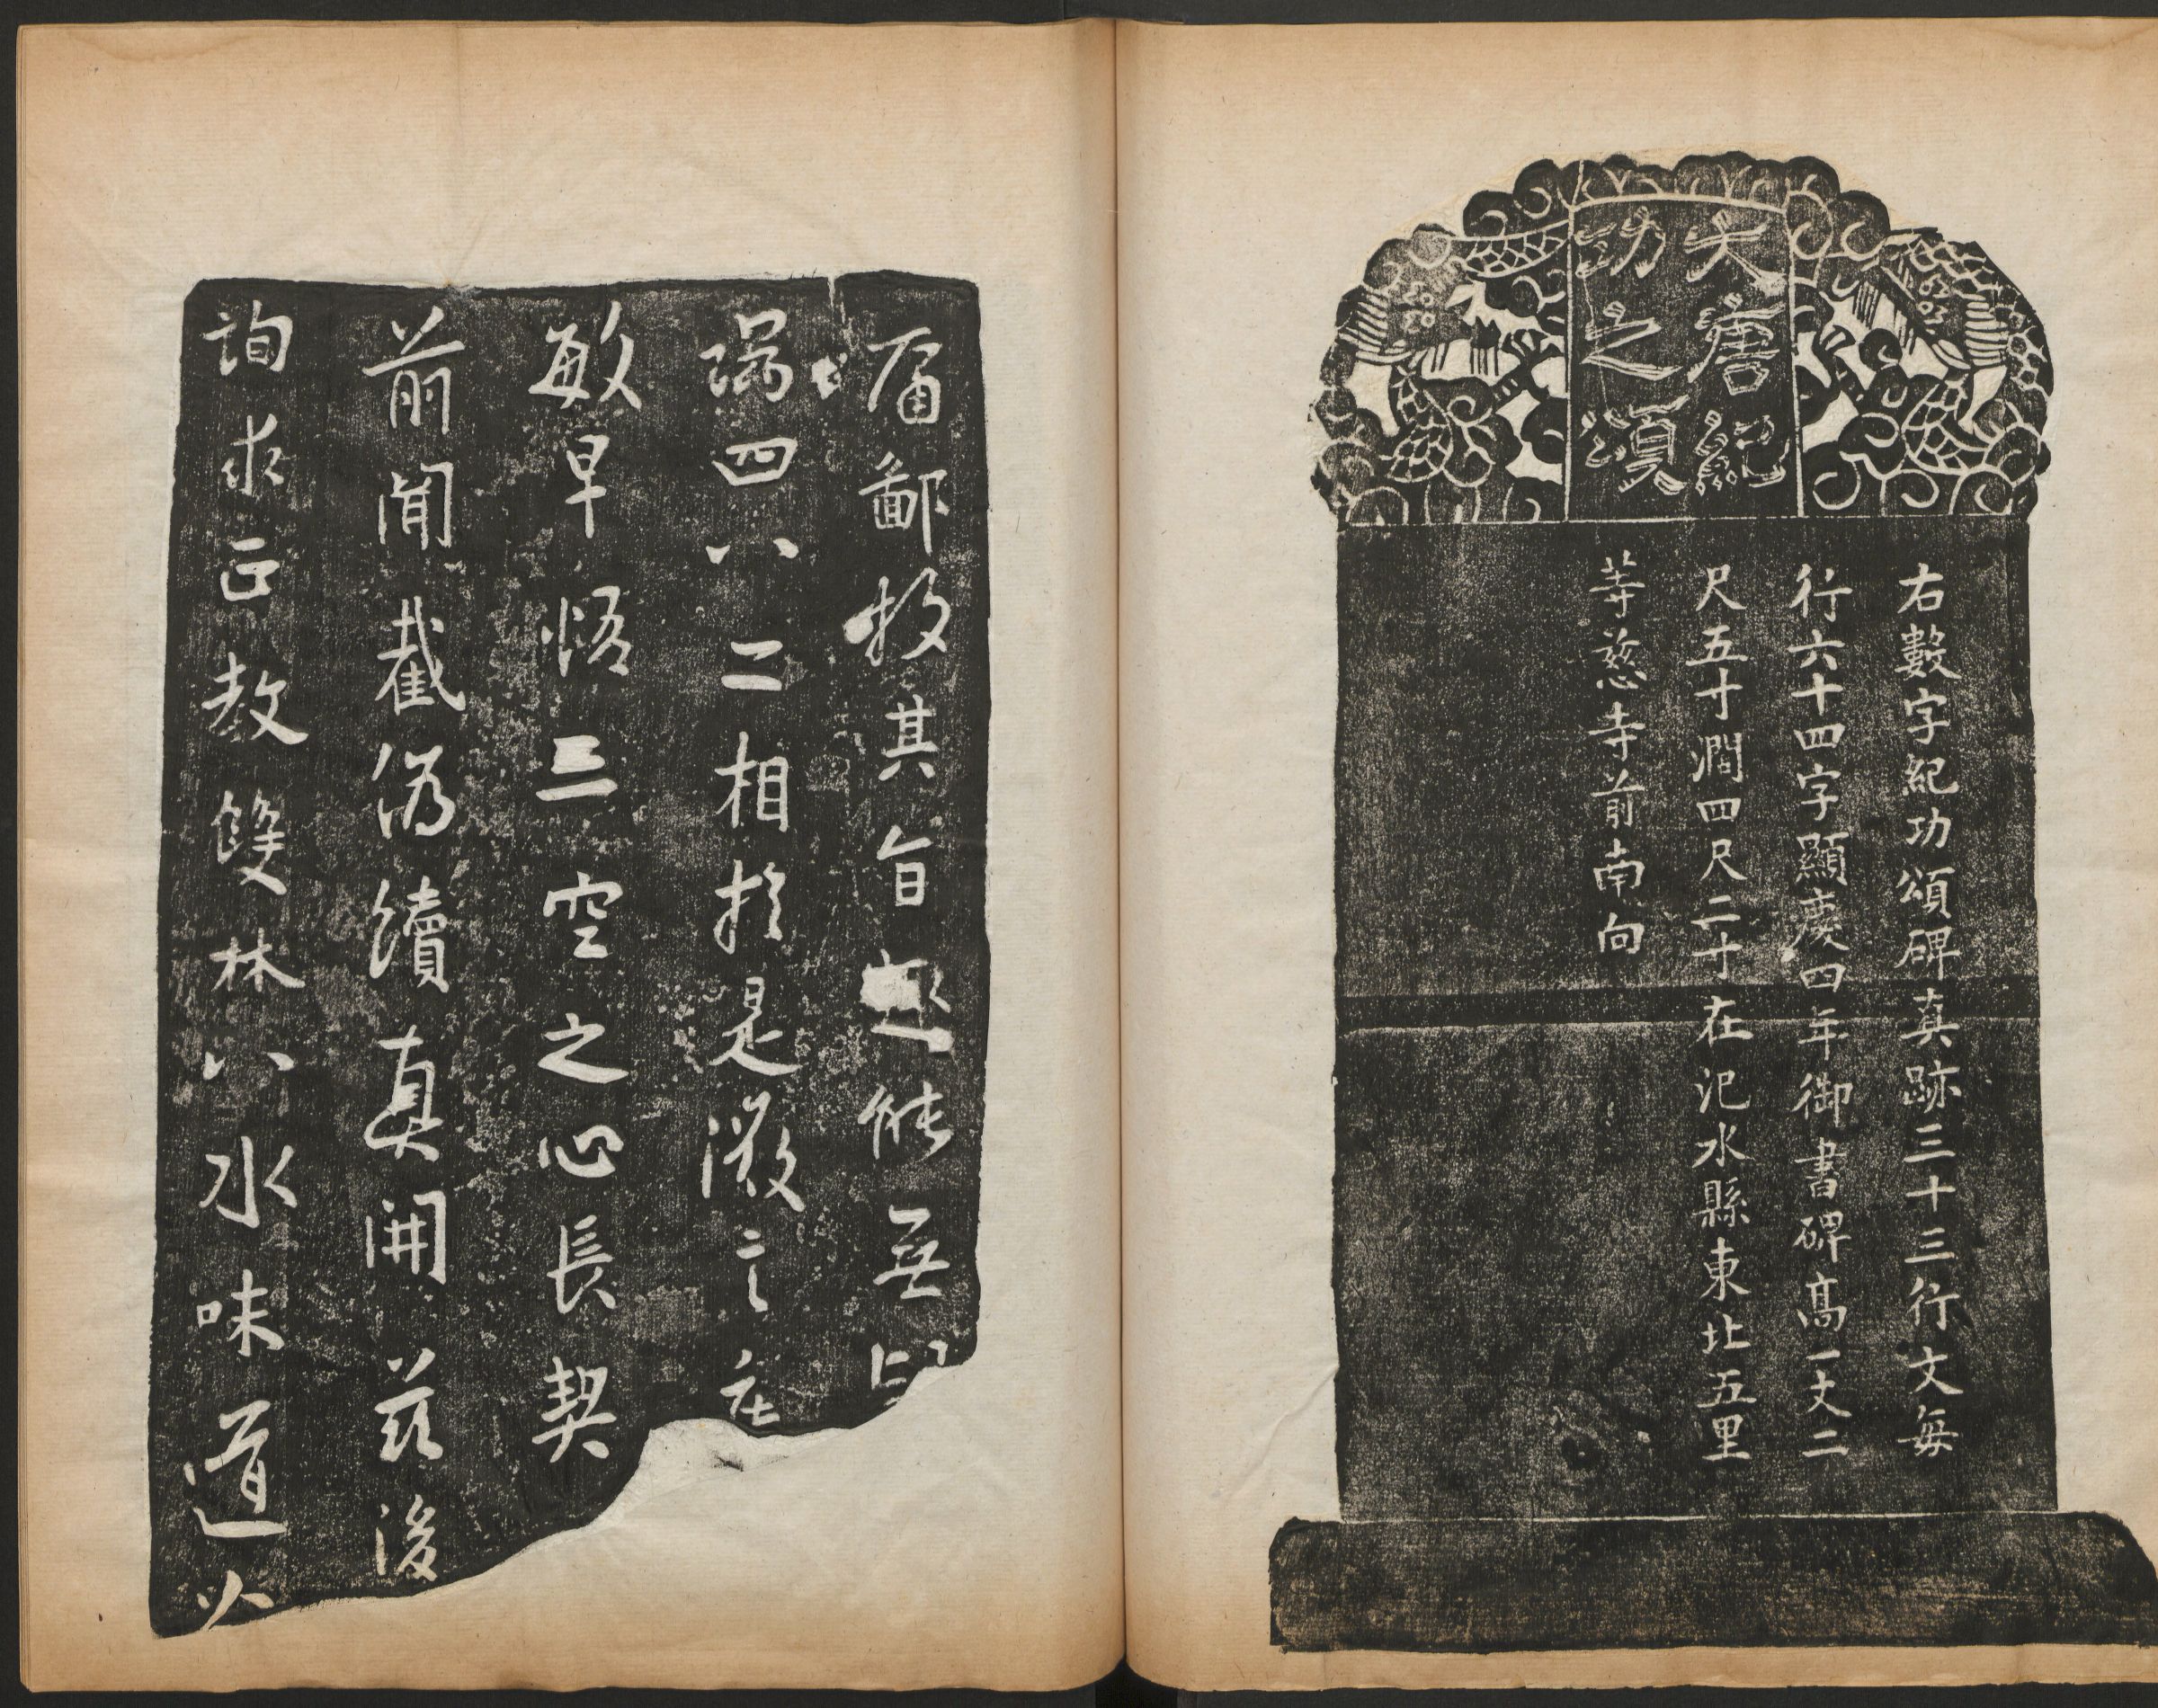 大唐紀
功之頌
右數字紀功頌碑真跡三十三行文每
行六十四字顯慶四年御書碑髙一丈二
尺五寸濶四尺二寸在汜水縣東北五里
等慈寺前南向
庸鄙投其旨趣能無
端四八之相於是微言
敏早悟三空之心長契
前聞截偽續真開茲後
詢求正教雙林八水味道